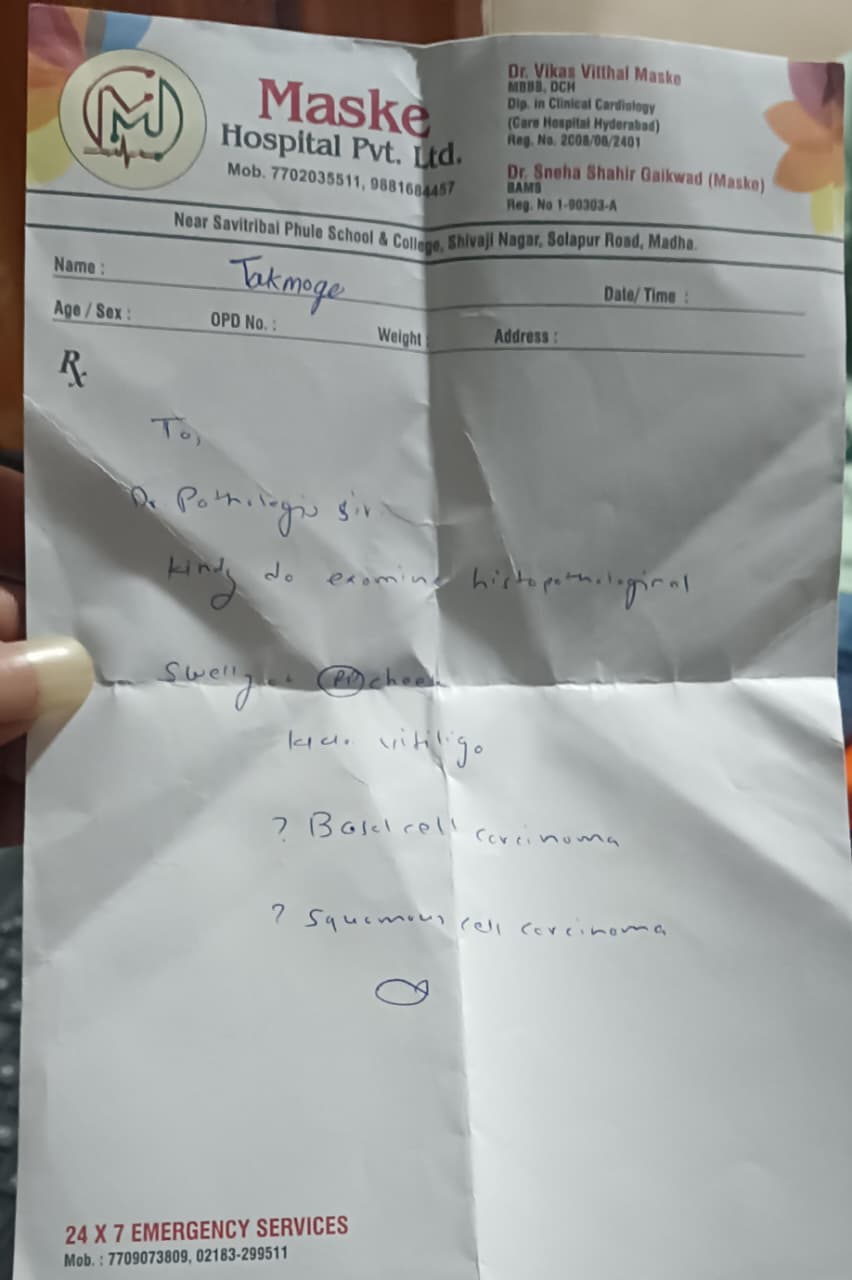 Maske
Hospital Pvt. Ltd.
Mob. 7702035511, 9881684457
Dr. Vikas Vitthal Maske
MBBS, DCH
Dip. in Clinical Cardiology
(Care Hospital Hyderabad)
Reg. No. 2008/08/2401
Dr. Sneha Shahir Gaikwad (Maske)
BAMS
Reg. No 1-90303-A
Near Savitribai Phule School & College, Shivaji Nagar, Solapur Road, Madha.
Name : Takmoge
Date/ Time :
Age / Sex : OPD No. : Weight Address :
Rx
To,
Dr sir
kindly do examine histopathological
cheek
vitiligo
? Basal cell carcinoma
? Squamous cell carcinoma
24 X 7 EMERGENCY SERVICES
Mob. : 7709073809, 02183-299511